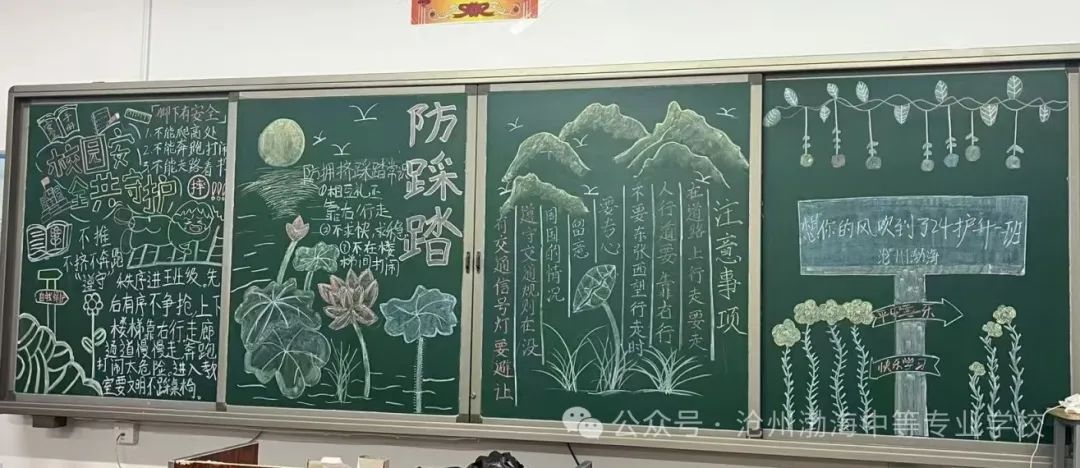 「脚下有安全」
1.不能爬高处
2.不能奔跑打闹
3.不能走路看书
校园安
全共守护
摔!!!
不推
不挤不奔跑
"遵守"
秩序进班级,先
后有序不争抢,上下
楼梯靠右行走廊
通道慢慢走奔跑
打闹大危险。进入教
室要文明不踩桌椅。
防踩踏
防拥挤踩踏常识
①相互礼让
靠右行走
②不求快,求稳
①不在楼
梯间打闹
注意事项
在道路上行走要走
人行道要靠右行
不要东张西望行走时
要专心
留意
周围的情况
遵守交通规则在没
有交通信号灯要避让
想你的风吹到了24护升一班
沧州渤海
平平安乐
快乐学习
公众号·沧州渤海中等专业学校